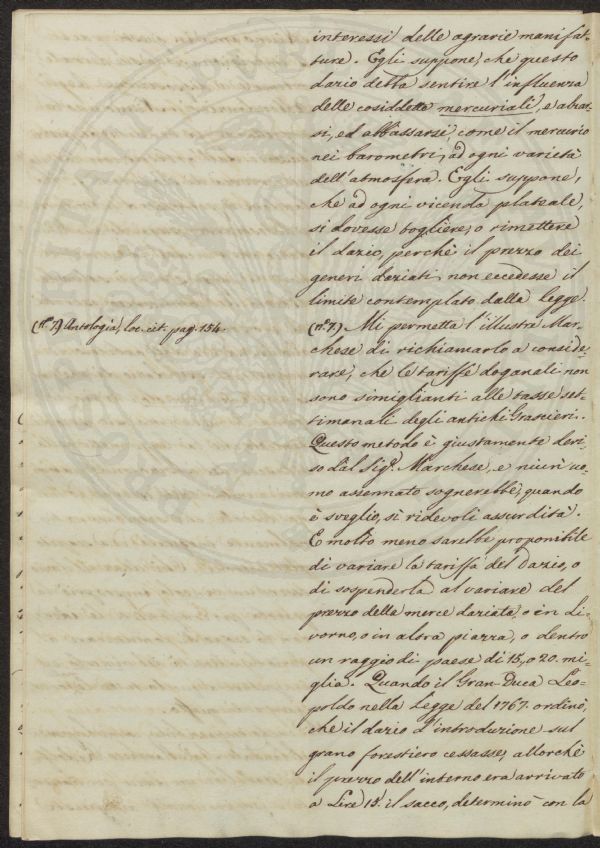 interessi delle agrarie manifat-
ture. Egli suppone, che questo
dazio debba sentire l'influenza
delle cosiddette mercuriali, e alzar-
si, ed abbassarsi, come il mercurio
nei barometri, ad ogni varietà
dell'atmosfera. Egli suppone,
che ad ogni vicenda plateale,
si dovesse togliere, o rimettere
il dazio, perchè il prezzo dei
generi daziati non eccedesse il
limite contemplato dalla legge.
(nº 7.) Mi permetta l'illustre Mar-
chese di richiamarlo a conside-
rare, che le tariffe doganali non
sono simiglianti alle tasse set-
timanali degli antichi Grascieri.
Questo metodo è giustamente deri-
so dal Sigr. Marchese, e niun uo-
mo assennato sognerebbe, quando
è sveglio, sì ridevoli assurdità.
E molto meno sarebbe proponibile
di variare la tariffa del Dazio, o
di sospenderla al variare del
prezzo della merce daziata, o in Li-
vorno, o in altra piazza, o dentro
un raggio di paese di 15, o 20. mi-
glia. Quando il Gran-Duca Leo-
poldo nella Legge del 1767. ordinò,
che il dazio d'introduzione sul
grano forestiero cessasse, allorchè
il prezzo dell'interno era arrivato
a Lire 15. il sacco, determinò con la
(nº 7.) Antologia, loc. cit. pag. 154.